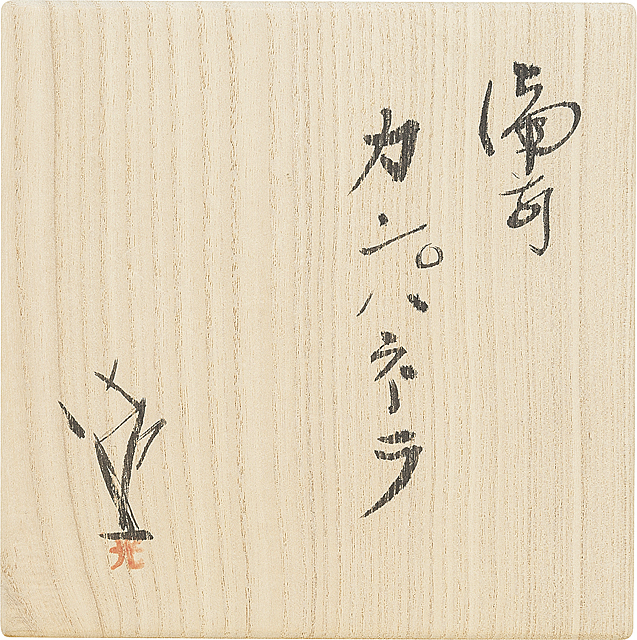 備前
カンパネラ